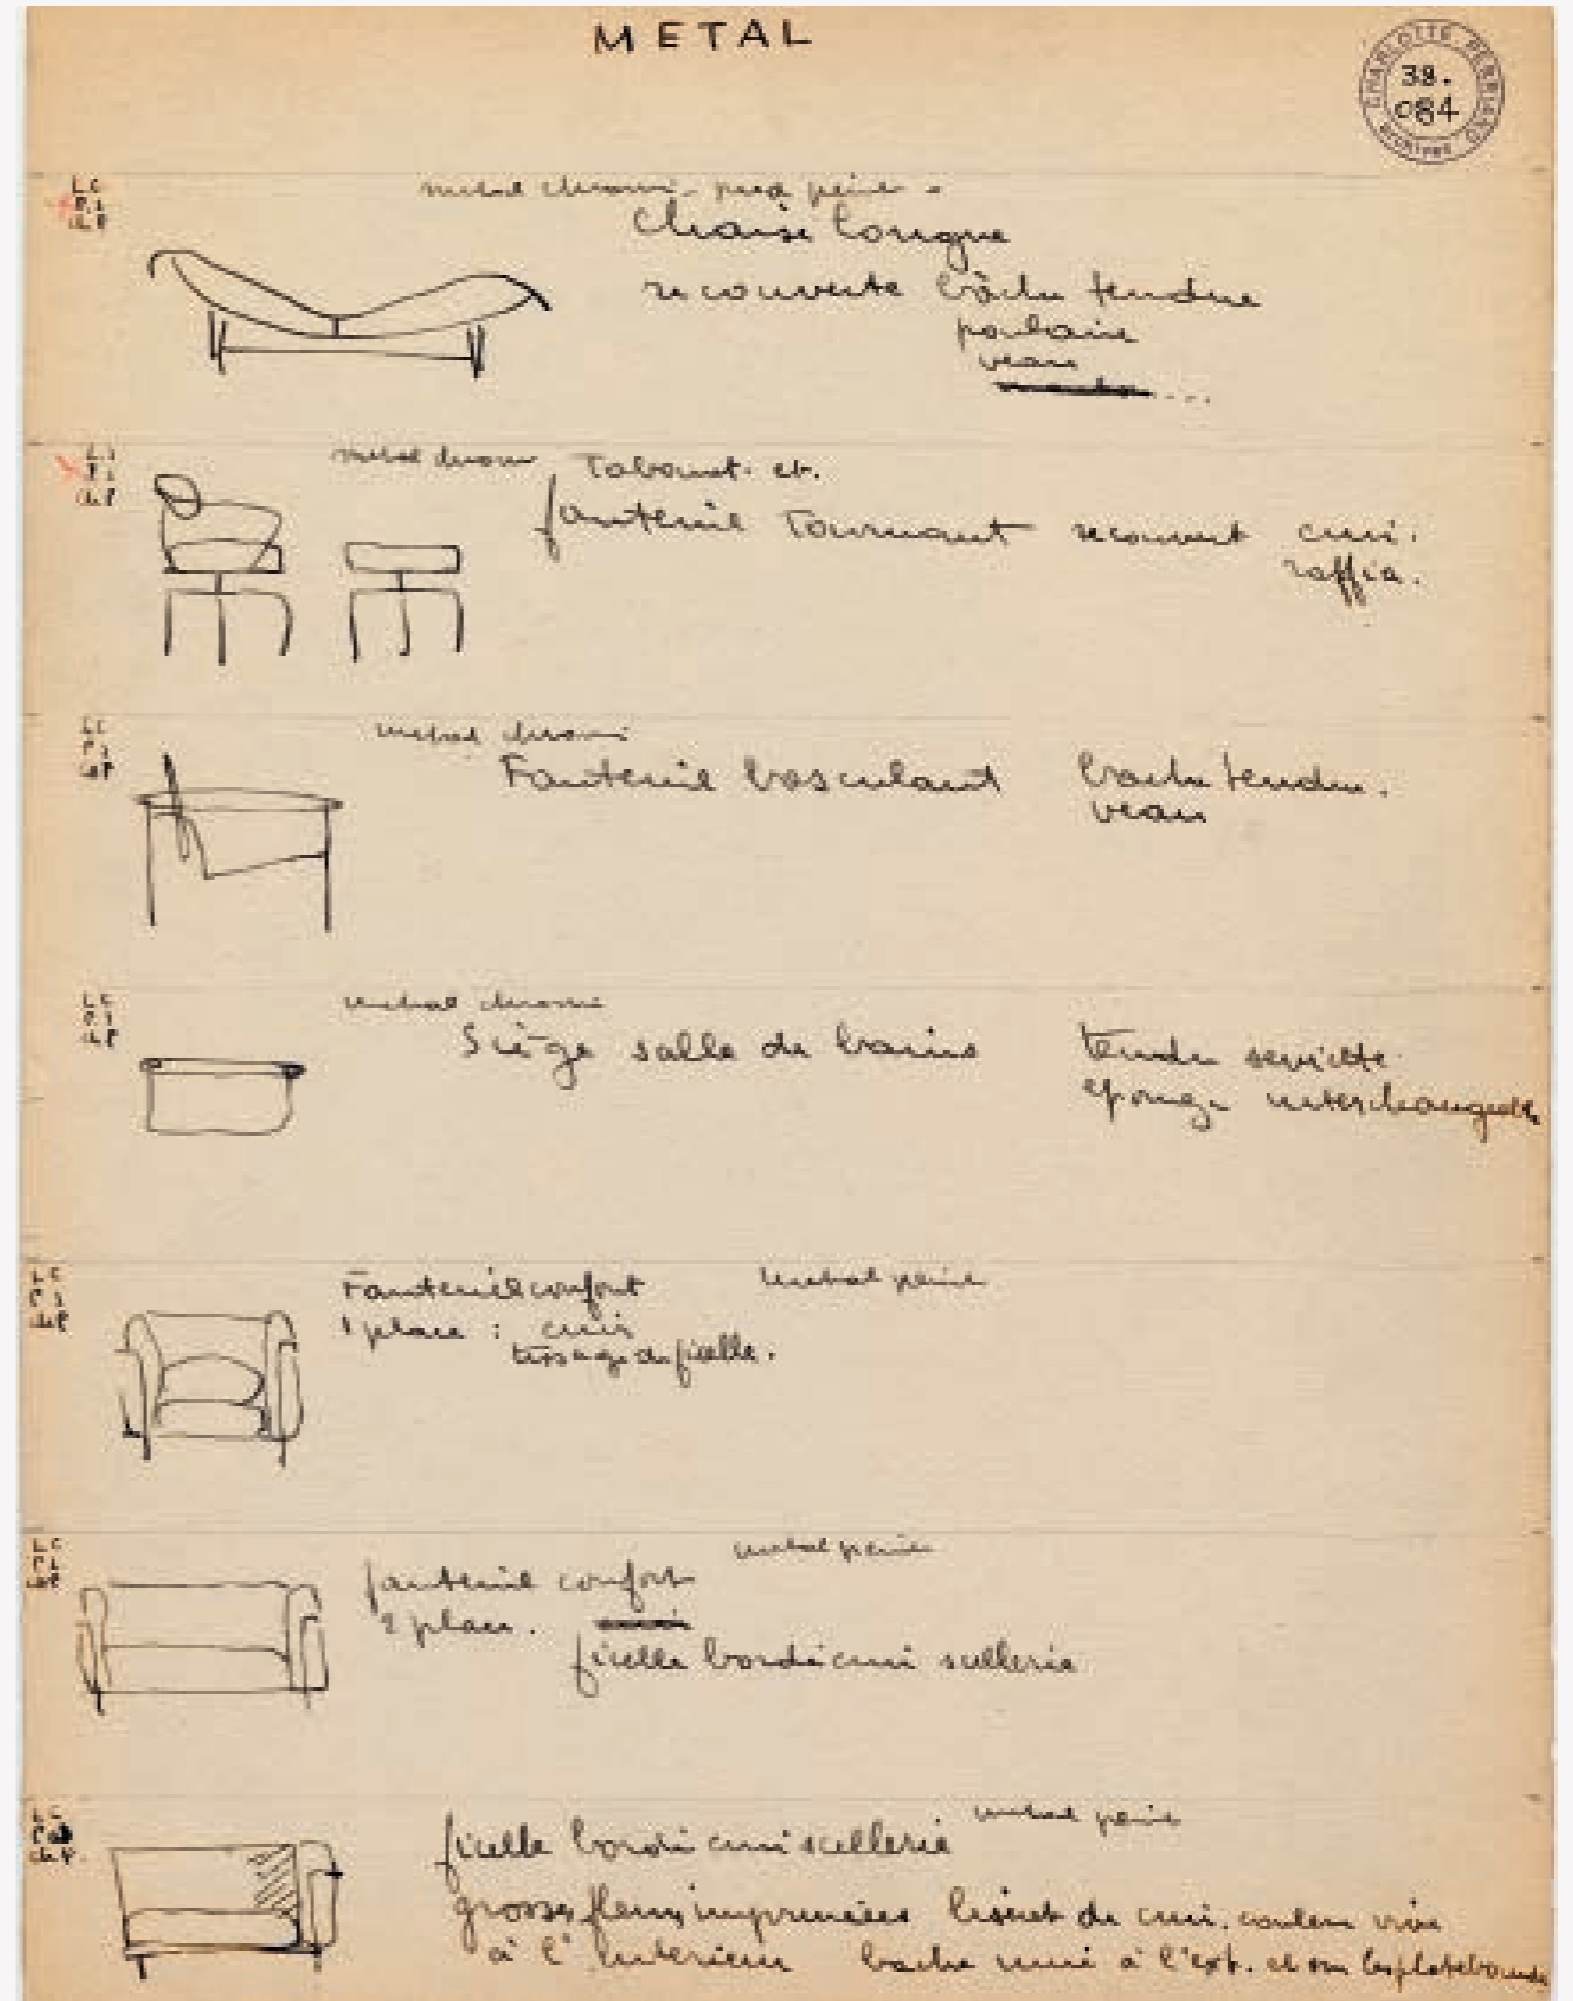 METAL
CHARLOTTE PERRIAND
38.
084
ARCHIVES
LC
P.J
ch.P
metal chromé - pieds peint -
Chaise longue
recouverte bâche tendue
poulain
veau
...
LC
PJ
ch.P
metal chromé Tabouret et
fauteuil Tournant recouvert cuir.
raffia.
LC
PJ
ch.P
metal chromé
Fauteuil basculant bache tendue.
veau
LC
PJ
ch.P
metal chromé
Siège salle de bains tendu serviette
eponge interchangeable
LC
PJ
ch.P
Fauteuil confort metal peint
1 place : cuir
tissage de ficelle.
LC
PJ
ch.P
metal peint
fauteuil confort
2 places.
ficelle bordé cuir sellerie
LC
ch.P.
metal peint
ficelle bordé cuir sellerie
grosses fleurs imprimées liseret de cuir. couleur
à l'interieur bache à l'ext. et sur les platebandes